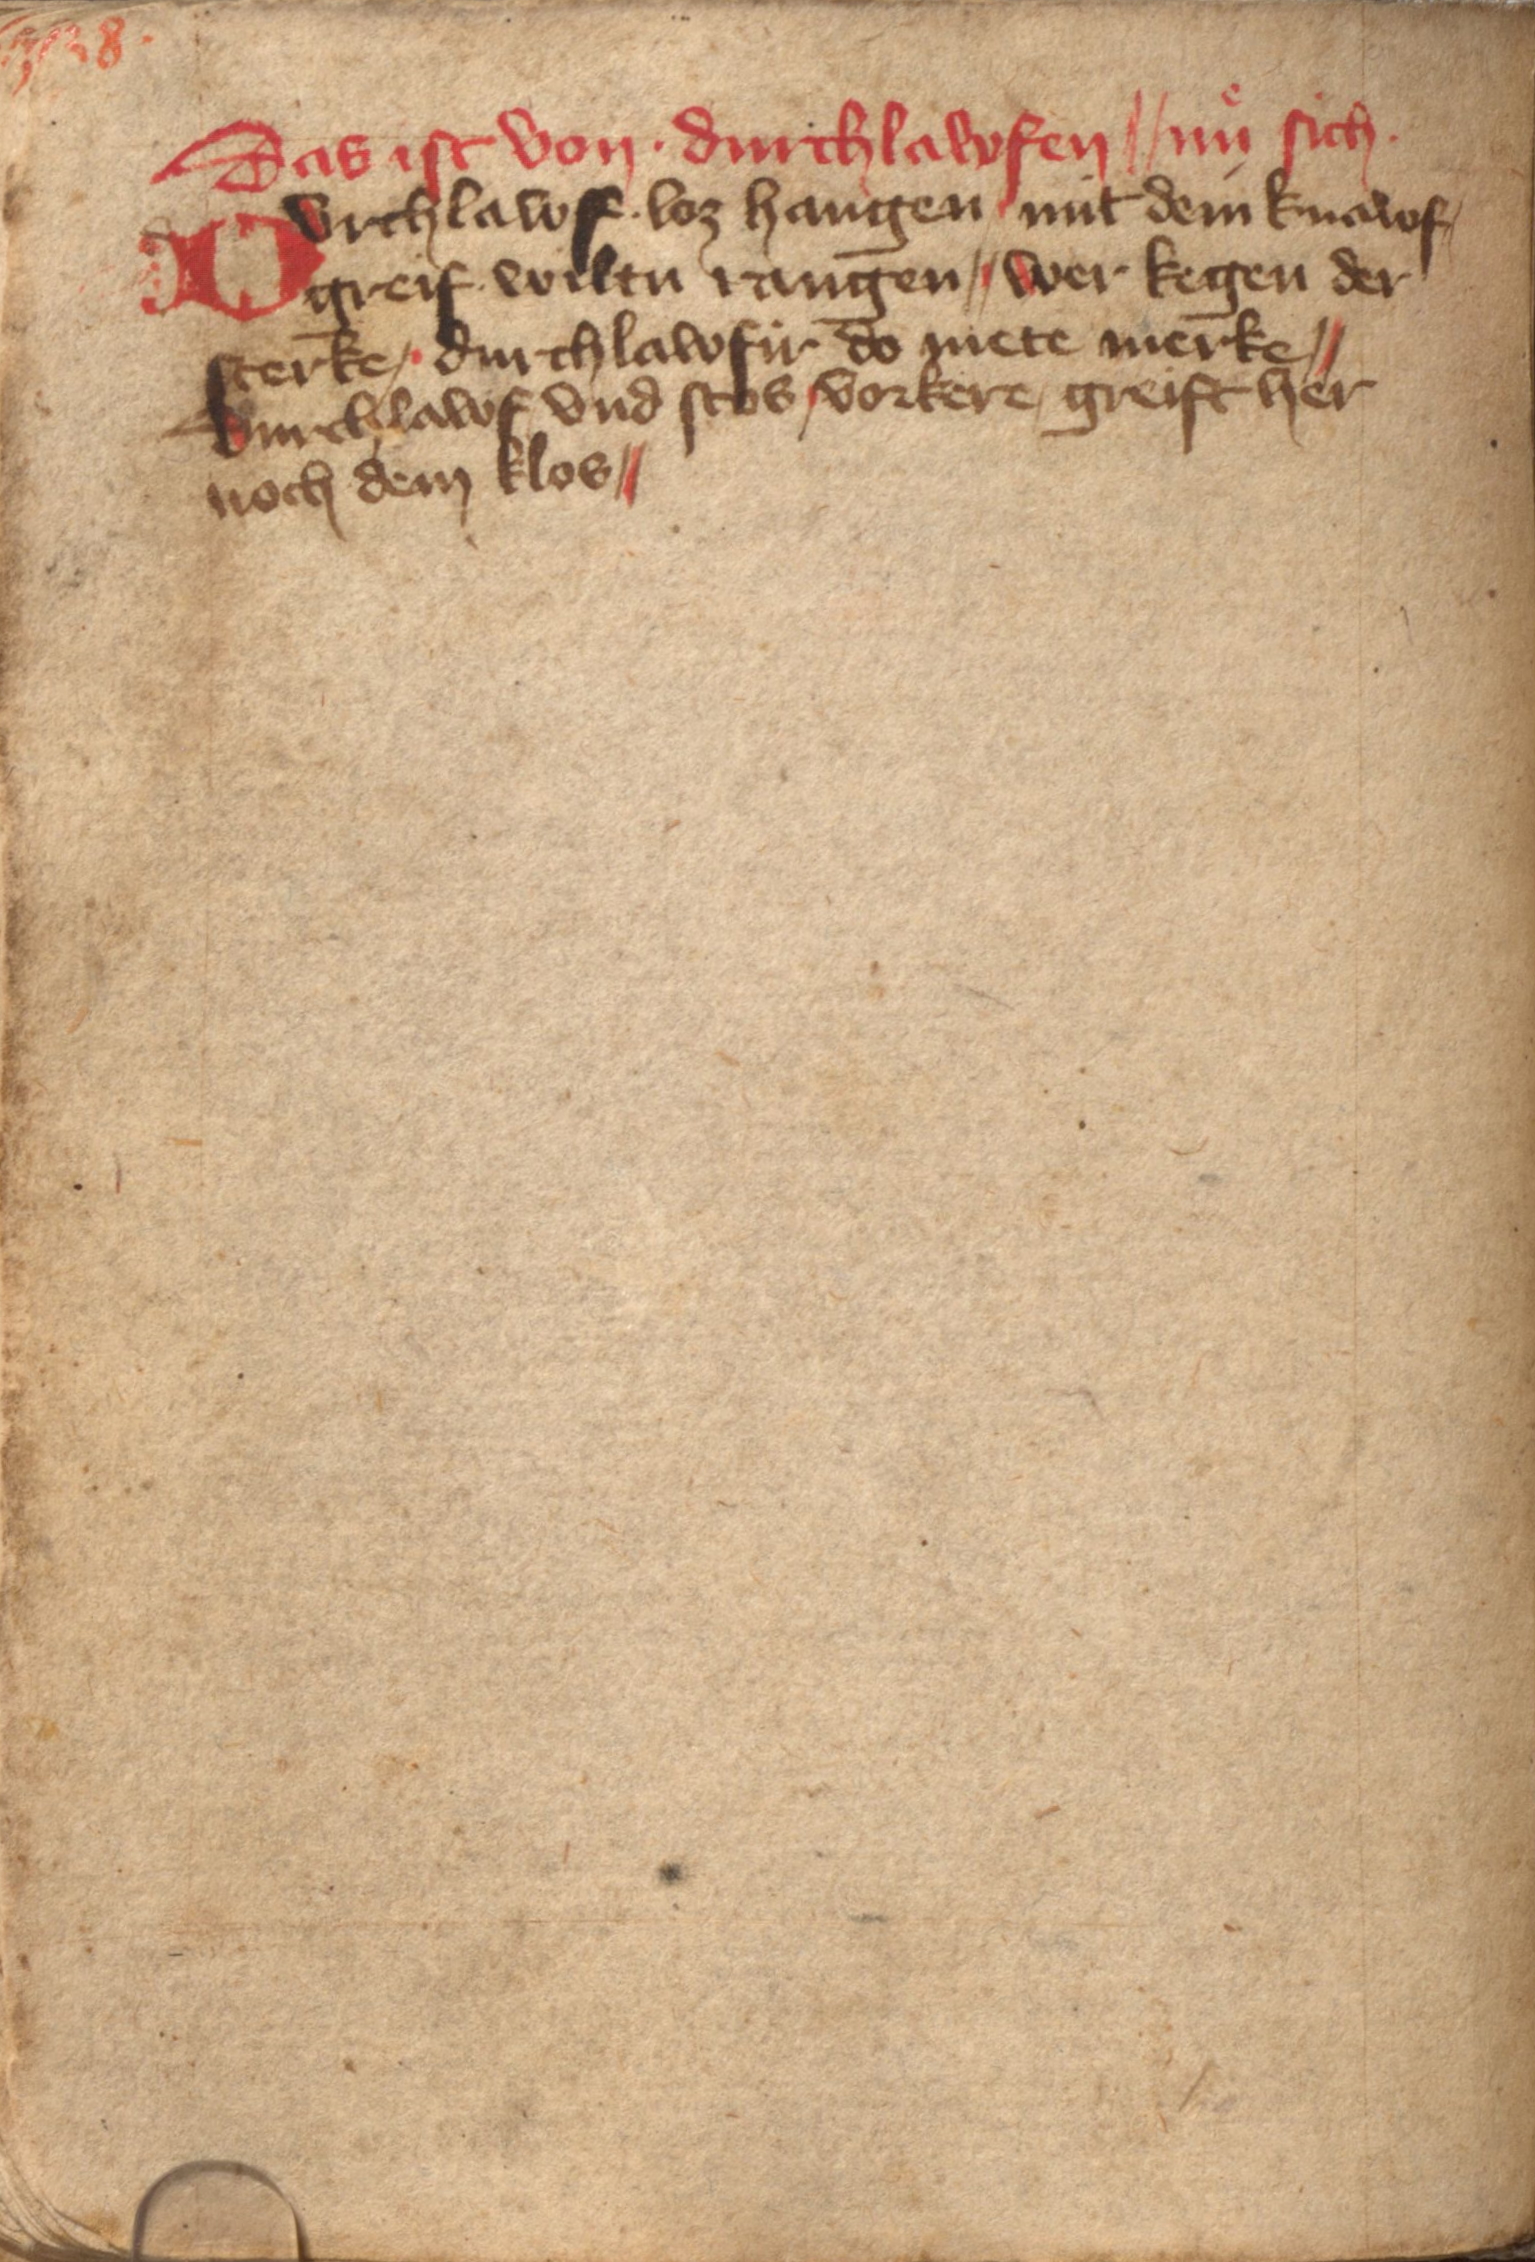 Das ist von · durchlawfen // nuͦ sich ·
Durchlawf · loz hangen / mit dem knawf /
greif · wiltu rangen // wer kegen der
sterke / durchlawfür do mete merke //
Durchlawf vnd stos / vorkere / greift her
noch dem klos //